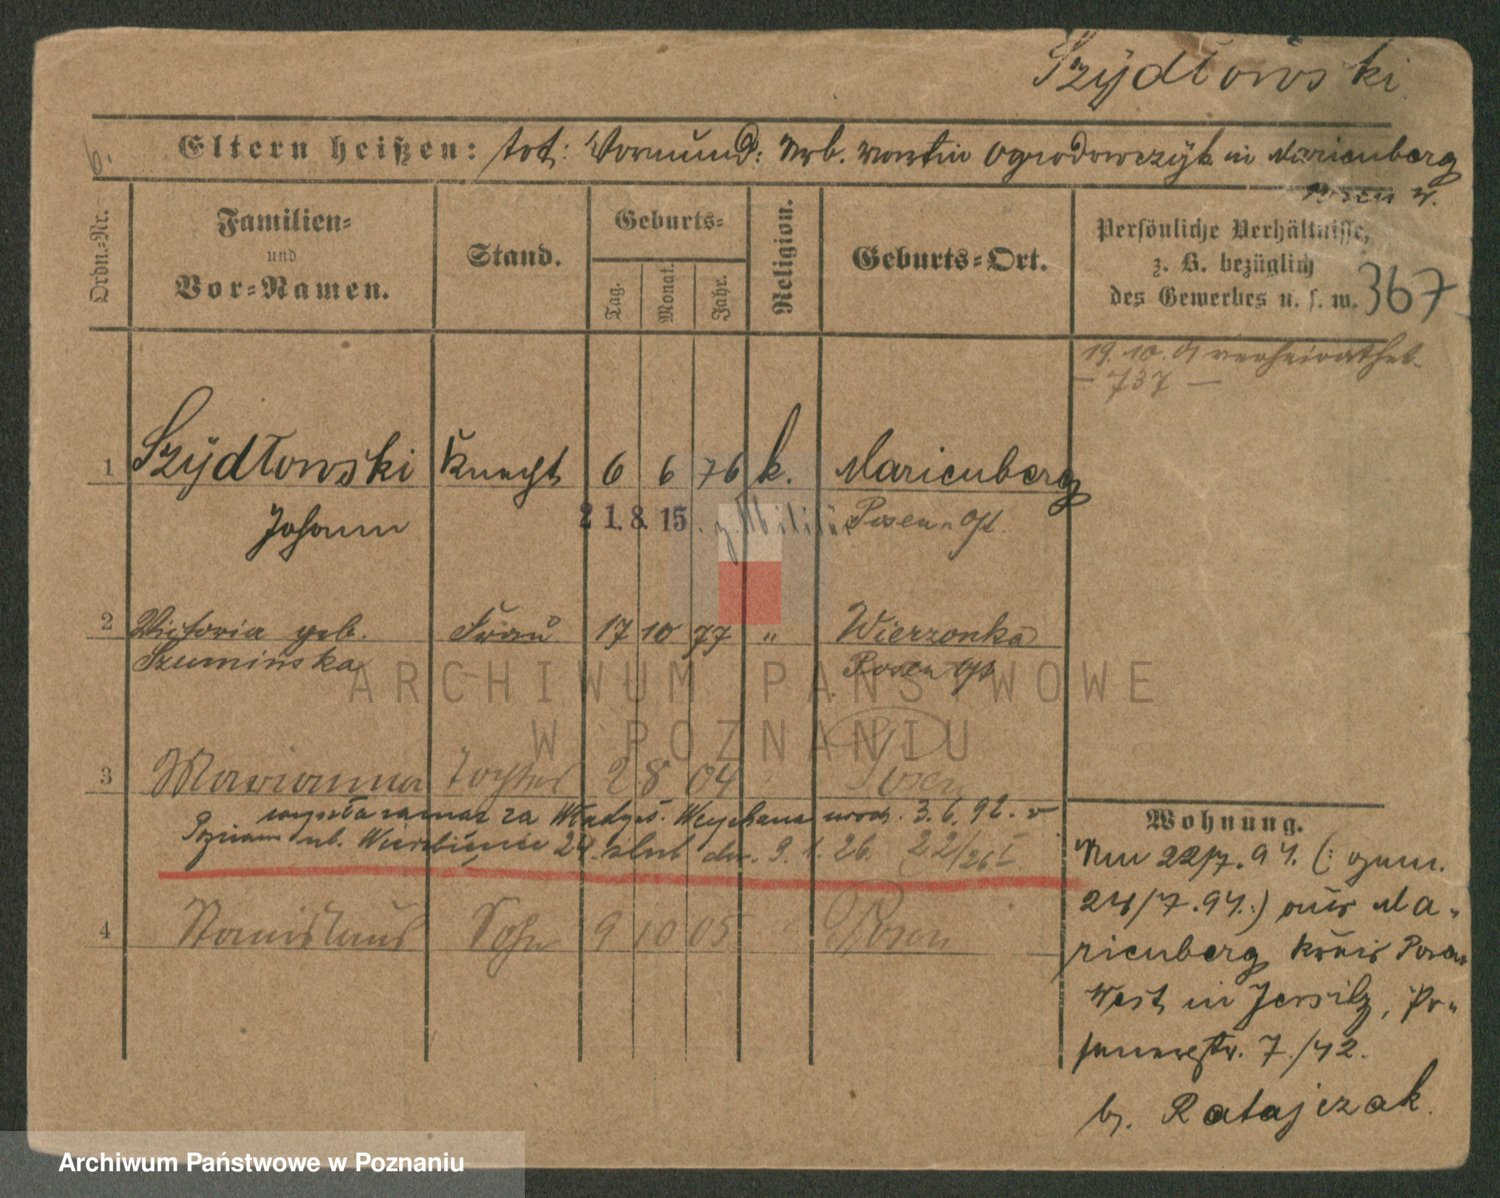 Szÿdłowski
6.
Eltern heißen: tot: Vormund: Arb. Martin Ogrodowczÿk in Marienberg
Posen W.
Ordn.-Nr.
Familien-
und
Vor-Namen.
Stand.
Geburts-
Tag.
Monat.
Jahr.
Religion.
Geburts-Ort.
Persönliche Verhältnisse,
z. B. bezüglich
des Gewerbes u. s. w. 367
19. 10. 01 verheirathet
— 737 —
1 Szÿdłowski Knecht 6 6 76 k. Marienberg
Johann 21.8.15. z. Militär Posen Ost.
2 Victoria geb. Frau 17 10 77 " Wierzonka
Szumińska Posen Ost
3 Marianna Tochter 2 8 04 Posen
wyszła zamąż za Władysł. 3.6.92. w
Poznaniu ul. Wierzbięcice 24. ślub dn. 9.1.26. 22/26 I
4 Stanislaus Sohn 9 10 05 Posen
Wohnung.
Am 22/7.94. (: gem.
24/7.94.) aus Ma-
rienberg Kreis Posen
West in Jersitz, Po-
senerstr. 7./42.
b. Ratajczak.
ARCHIWUM PAŃSTWOWE
W POZNANIU
Archiwum Państwowe w Poznaniu